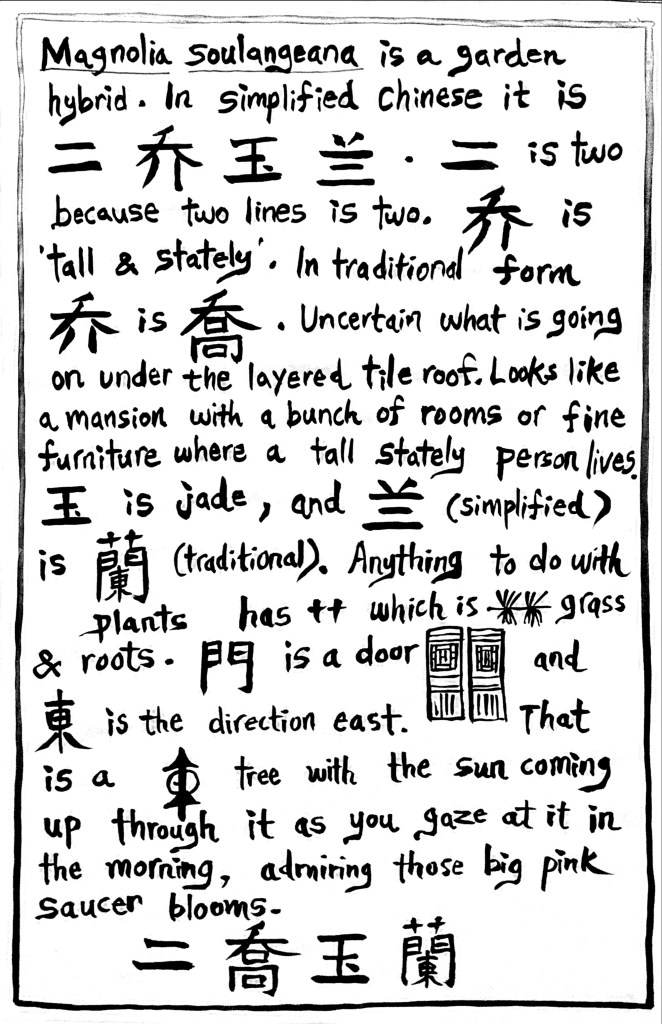 Magnolia soulangeana is a garden
hybrid. In simplified Chinese it is
二 乔 玉 兰. 二 is two
because two lines is two. 乔 is
'tall & stately'. In traditional form
乔 is 喬. Uncertain what is going
on under the layered tile roof. Looks like
a mansion with a bunch of rooms or fine
furniture where a tall stately person lives.
玉 is jade, and 兰 (simplified)
is 蘭 (traditional). Anything to do with
plants has ++ which is grass
& roots. 門 is a door and
東 is the direction east. That
is a tree with the sun coming
up through it as you gaze at it in
the morning, admiring those big pink
saucer blooms.
二 喬 玉 蘭